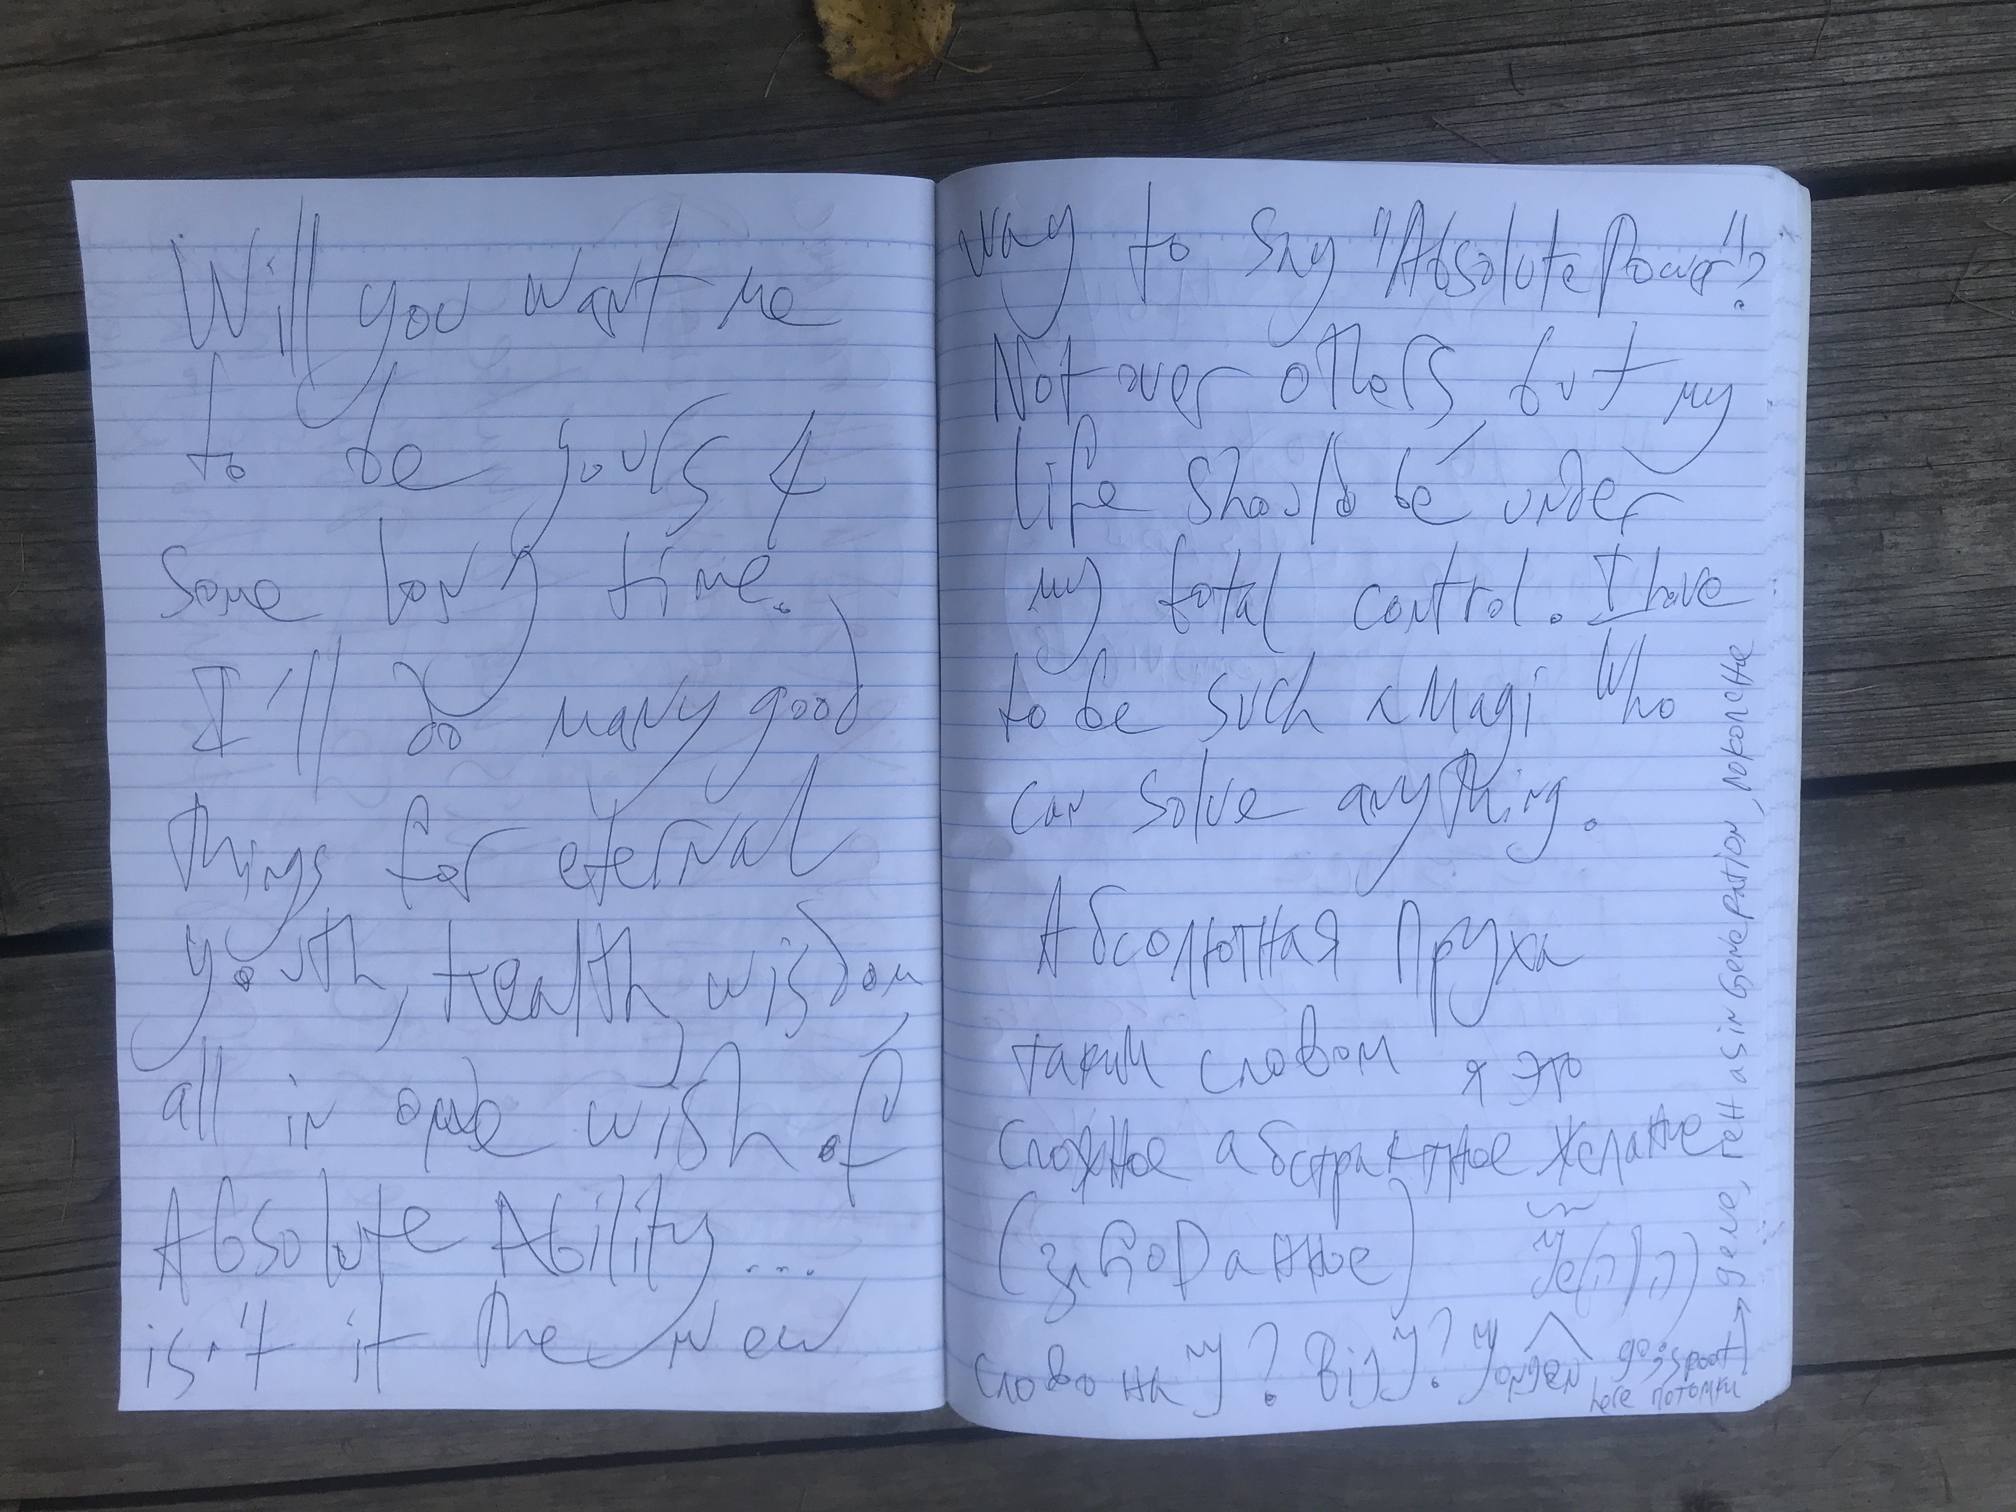 Will you want me
to be yours 4
some long time.
I'll do many good
things for eternal
youth, health, wisdom
all in one wish of
Absolute Ability...
isn't it the new
way to say "Absolute Power"?
Not over others, but my
life should be under
my total control. I have
to be such a Magi who
can solve anything.
Абсолютная Пруха
таким словом я это
сложное абстрактное желание
слово на У?
gene, ген as in Generation, поколение
here потомки